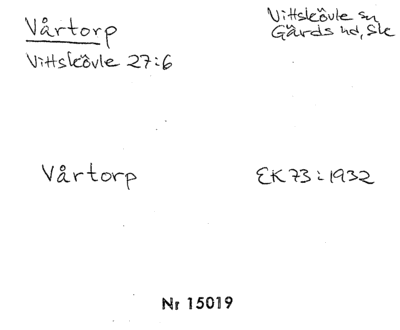 Vårtorp
Vittskövle 27:6
Vittskövle sn
Gärds hd, Sk
Vårtorp
EK 73:1932
Nr 15019